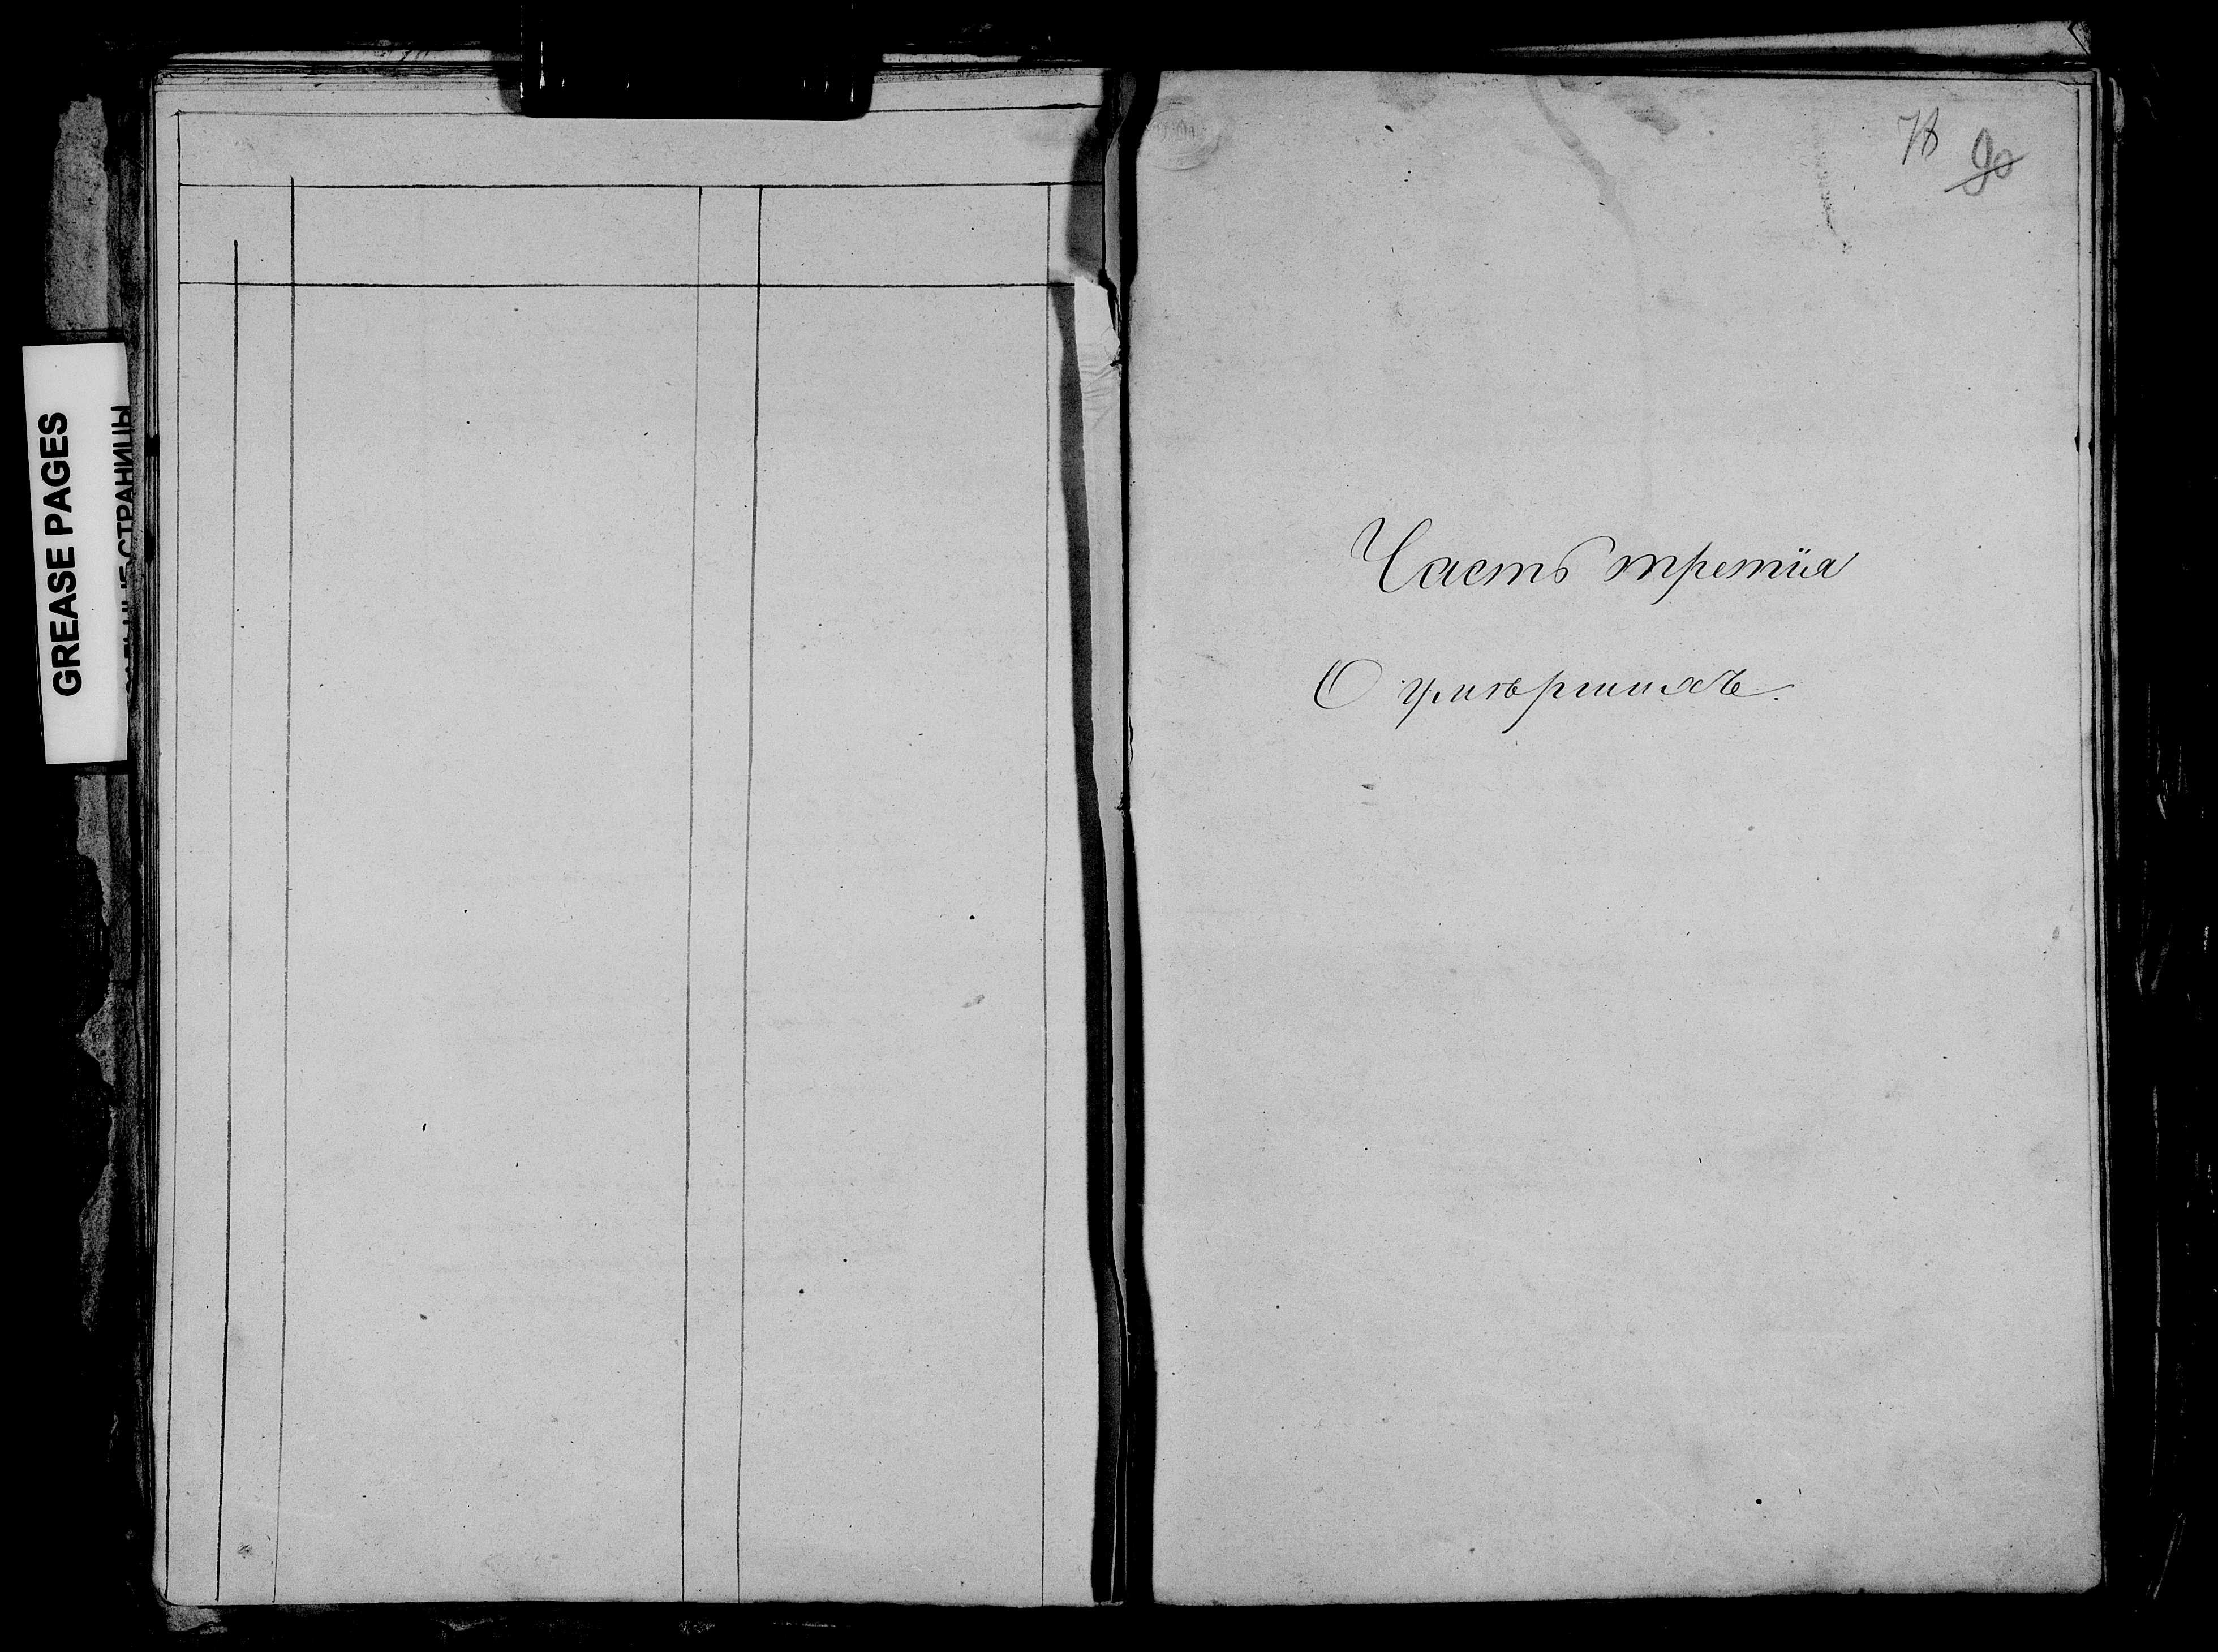 GREASE PAGES
СТРАНИЦЫ
78 90
Часть третія
О умершихъ.